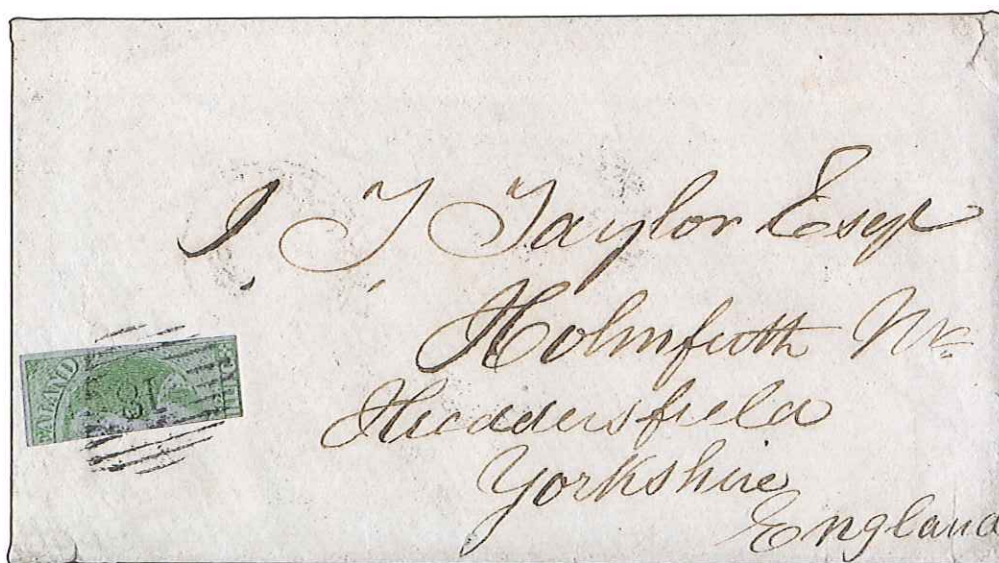 J. T. Taylor Esqr
Holmfirth Nr
Huddersfield
Yorkshire
England
EALAND
18